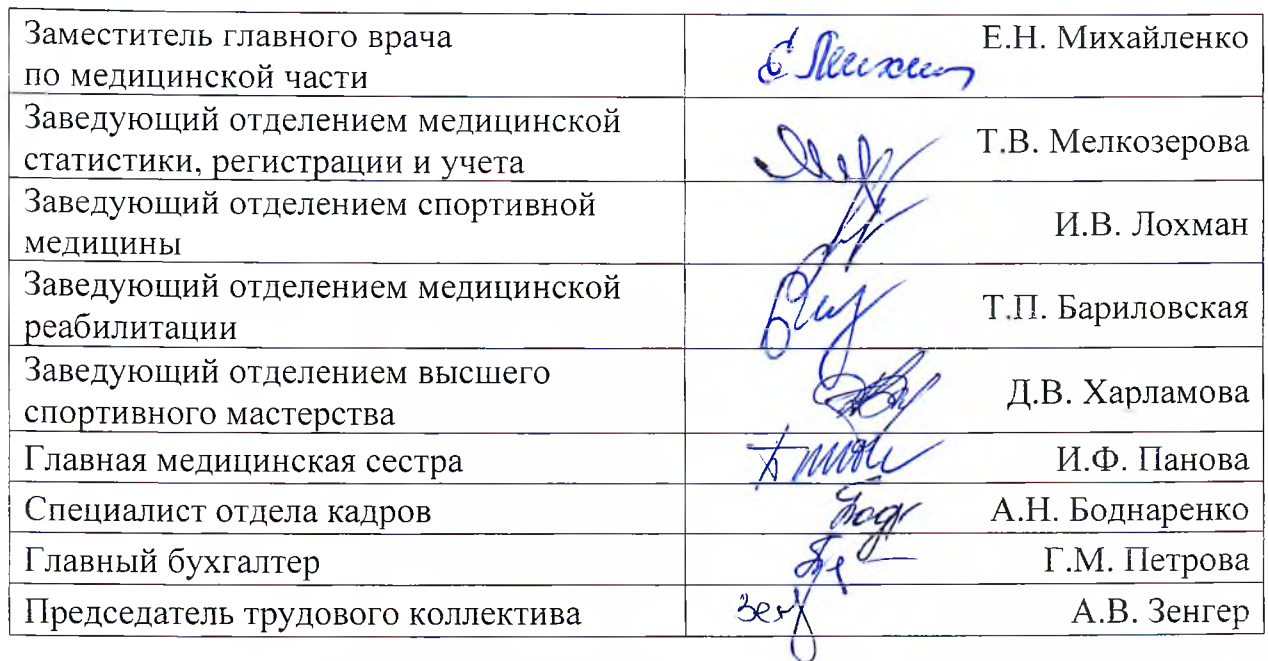 Заместитель главного врача
по медицинской части
Е.Н. Михайленко
Заведующий отделением медицинской
статистики, регистрации и учета
Т.В. Мелкозерова
Заведующий отделением спортивной
медицины
И.В. Лохман
Заведующий отделением медицинской
реабилитации
Т.П. Бариловская
Заведующий отделением высшего
спортивного мастерства
Д.В. Харламова
Главная медицинская сестра
И.Ф. Панова
Специалист отдела кадров
А.Н. Боднаренко
Главный бухгалтер
Г.М. Петрова
Председатель трудового коллектива
А.В. Зенгер